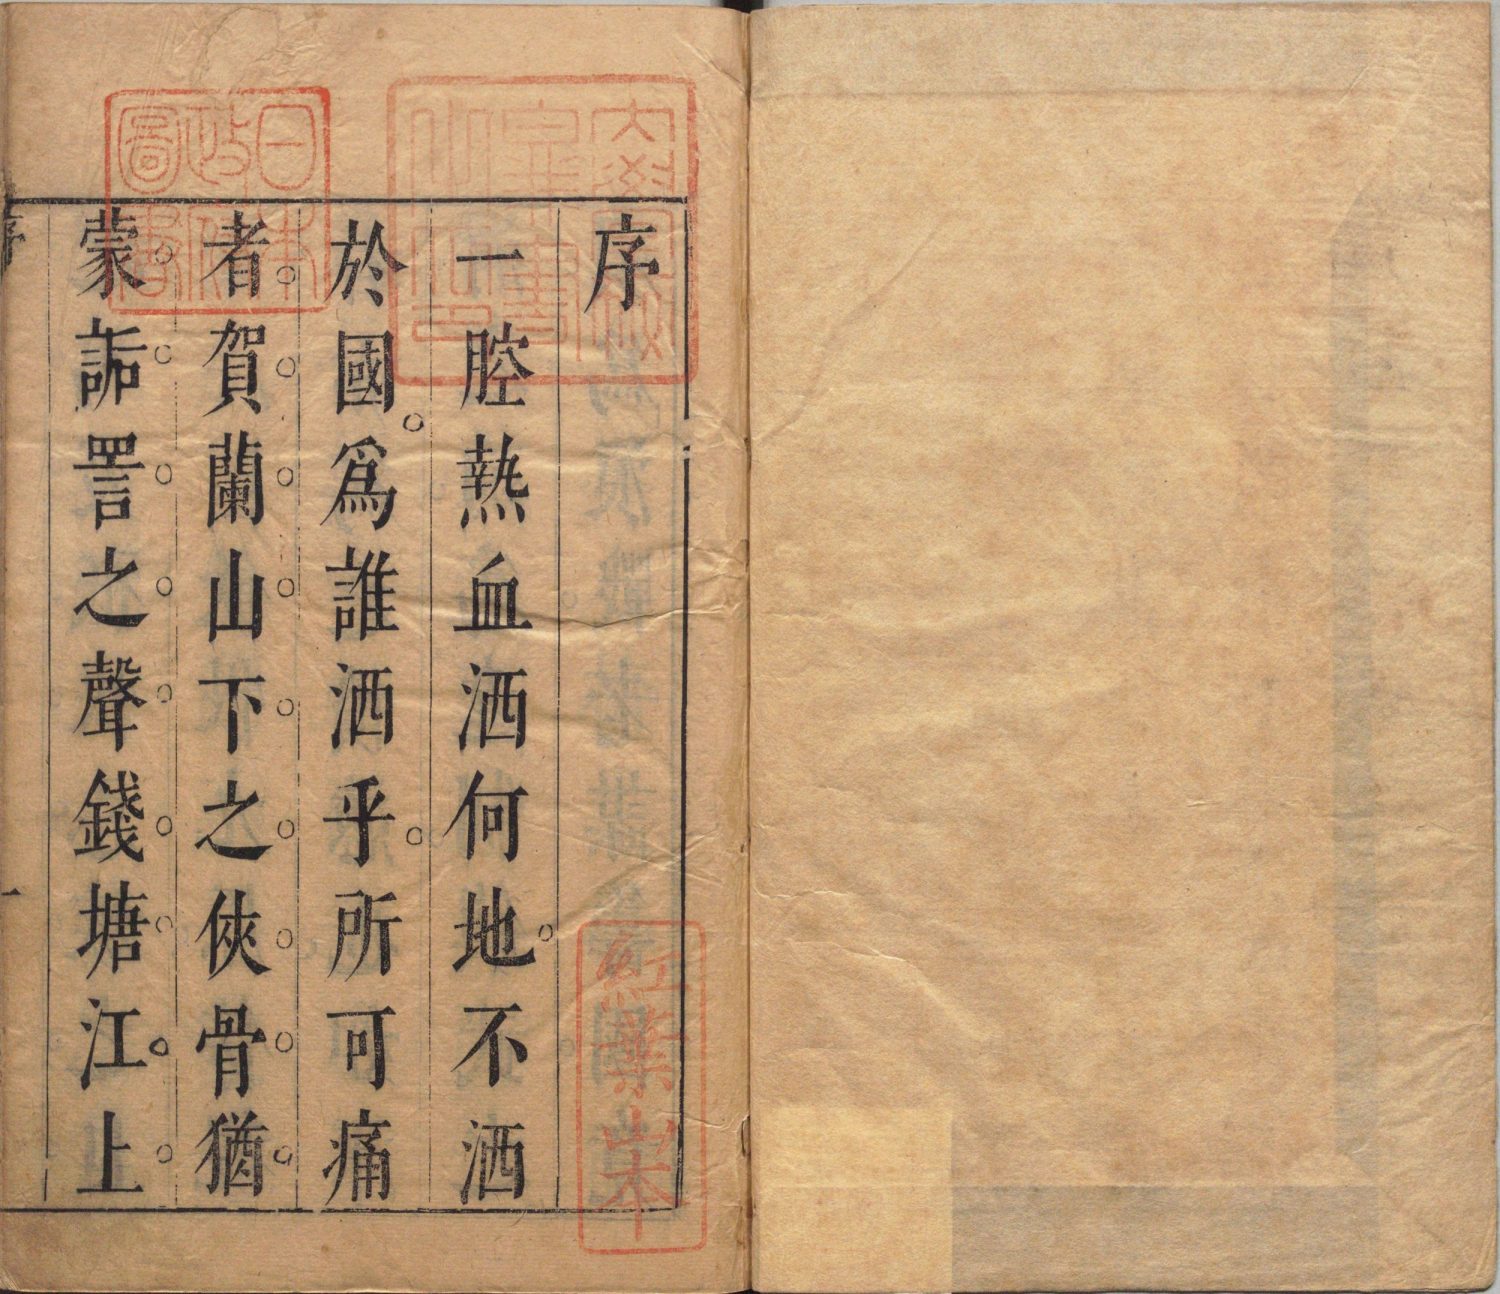 序
一腔熱血洒何地不洒
於國爲誰洒乎所可痛
者賀蘭山下之俠骨猶
蒙詬詈之聲錢塘江上
序
一
日本政府圖書
紅葉山本